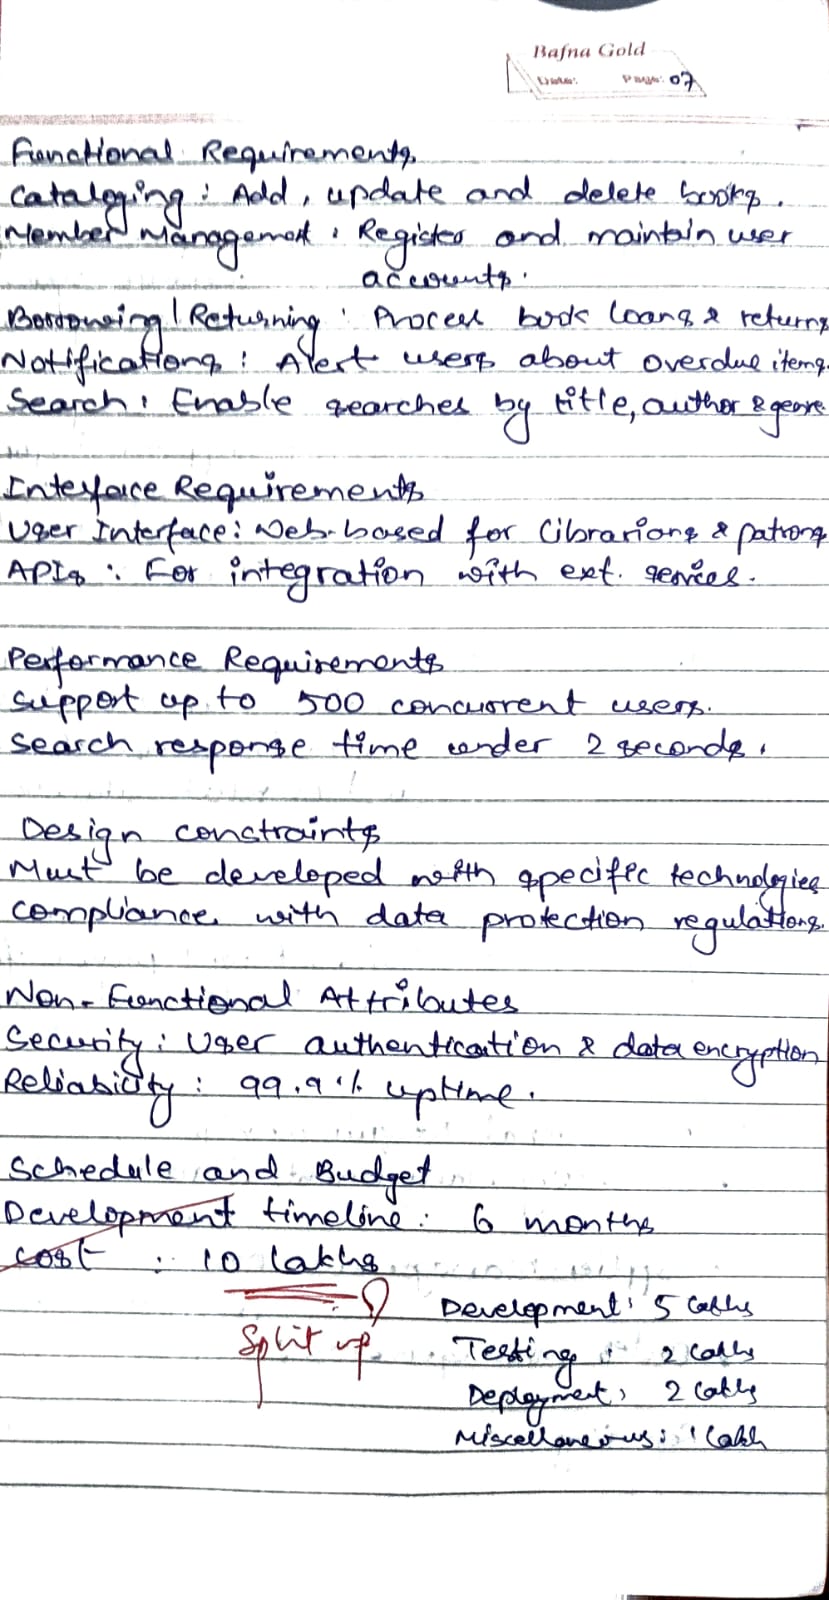 Bafna Gold
Date: Page: 07
Functional Requirements
Cataloging : Add, update and delete books.
Member Management : Register and maintain user
accounts.
Borrowing / Returning : Process book loans & returns
Notifications : Alert users about overdue items.
Search : Enable searches by title, author & genre.
Interface Requirements
User Interface : Web-based for librarians & patrons
APIs : For integration with ext. services.
Performance Requirements
Support up to 500 concurrent users.
Search response time under 2 seconds.
Design constraints
Must be developed with specific technologies
compliance with data protection regulations.
Non-Functional Attributes
Security : User authentication & data encryption
Reliability : 99.9% uptime.
Schedule and Budget
Development timeline : 6 months
Cost : 10 lakhs
Split up
Development : 5 lakhs
Testing : 2 lakhs
Deployment : 2 lakhs
Miscellaneous : 1 lakh